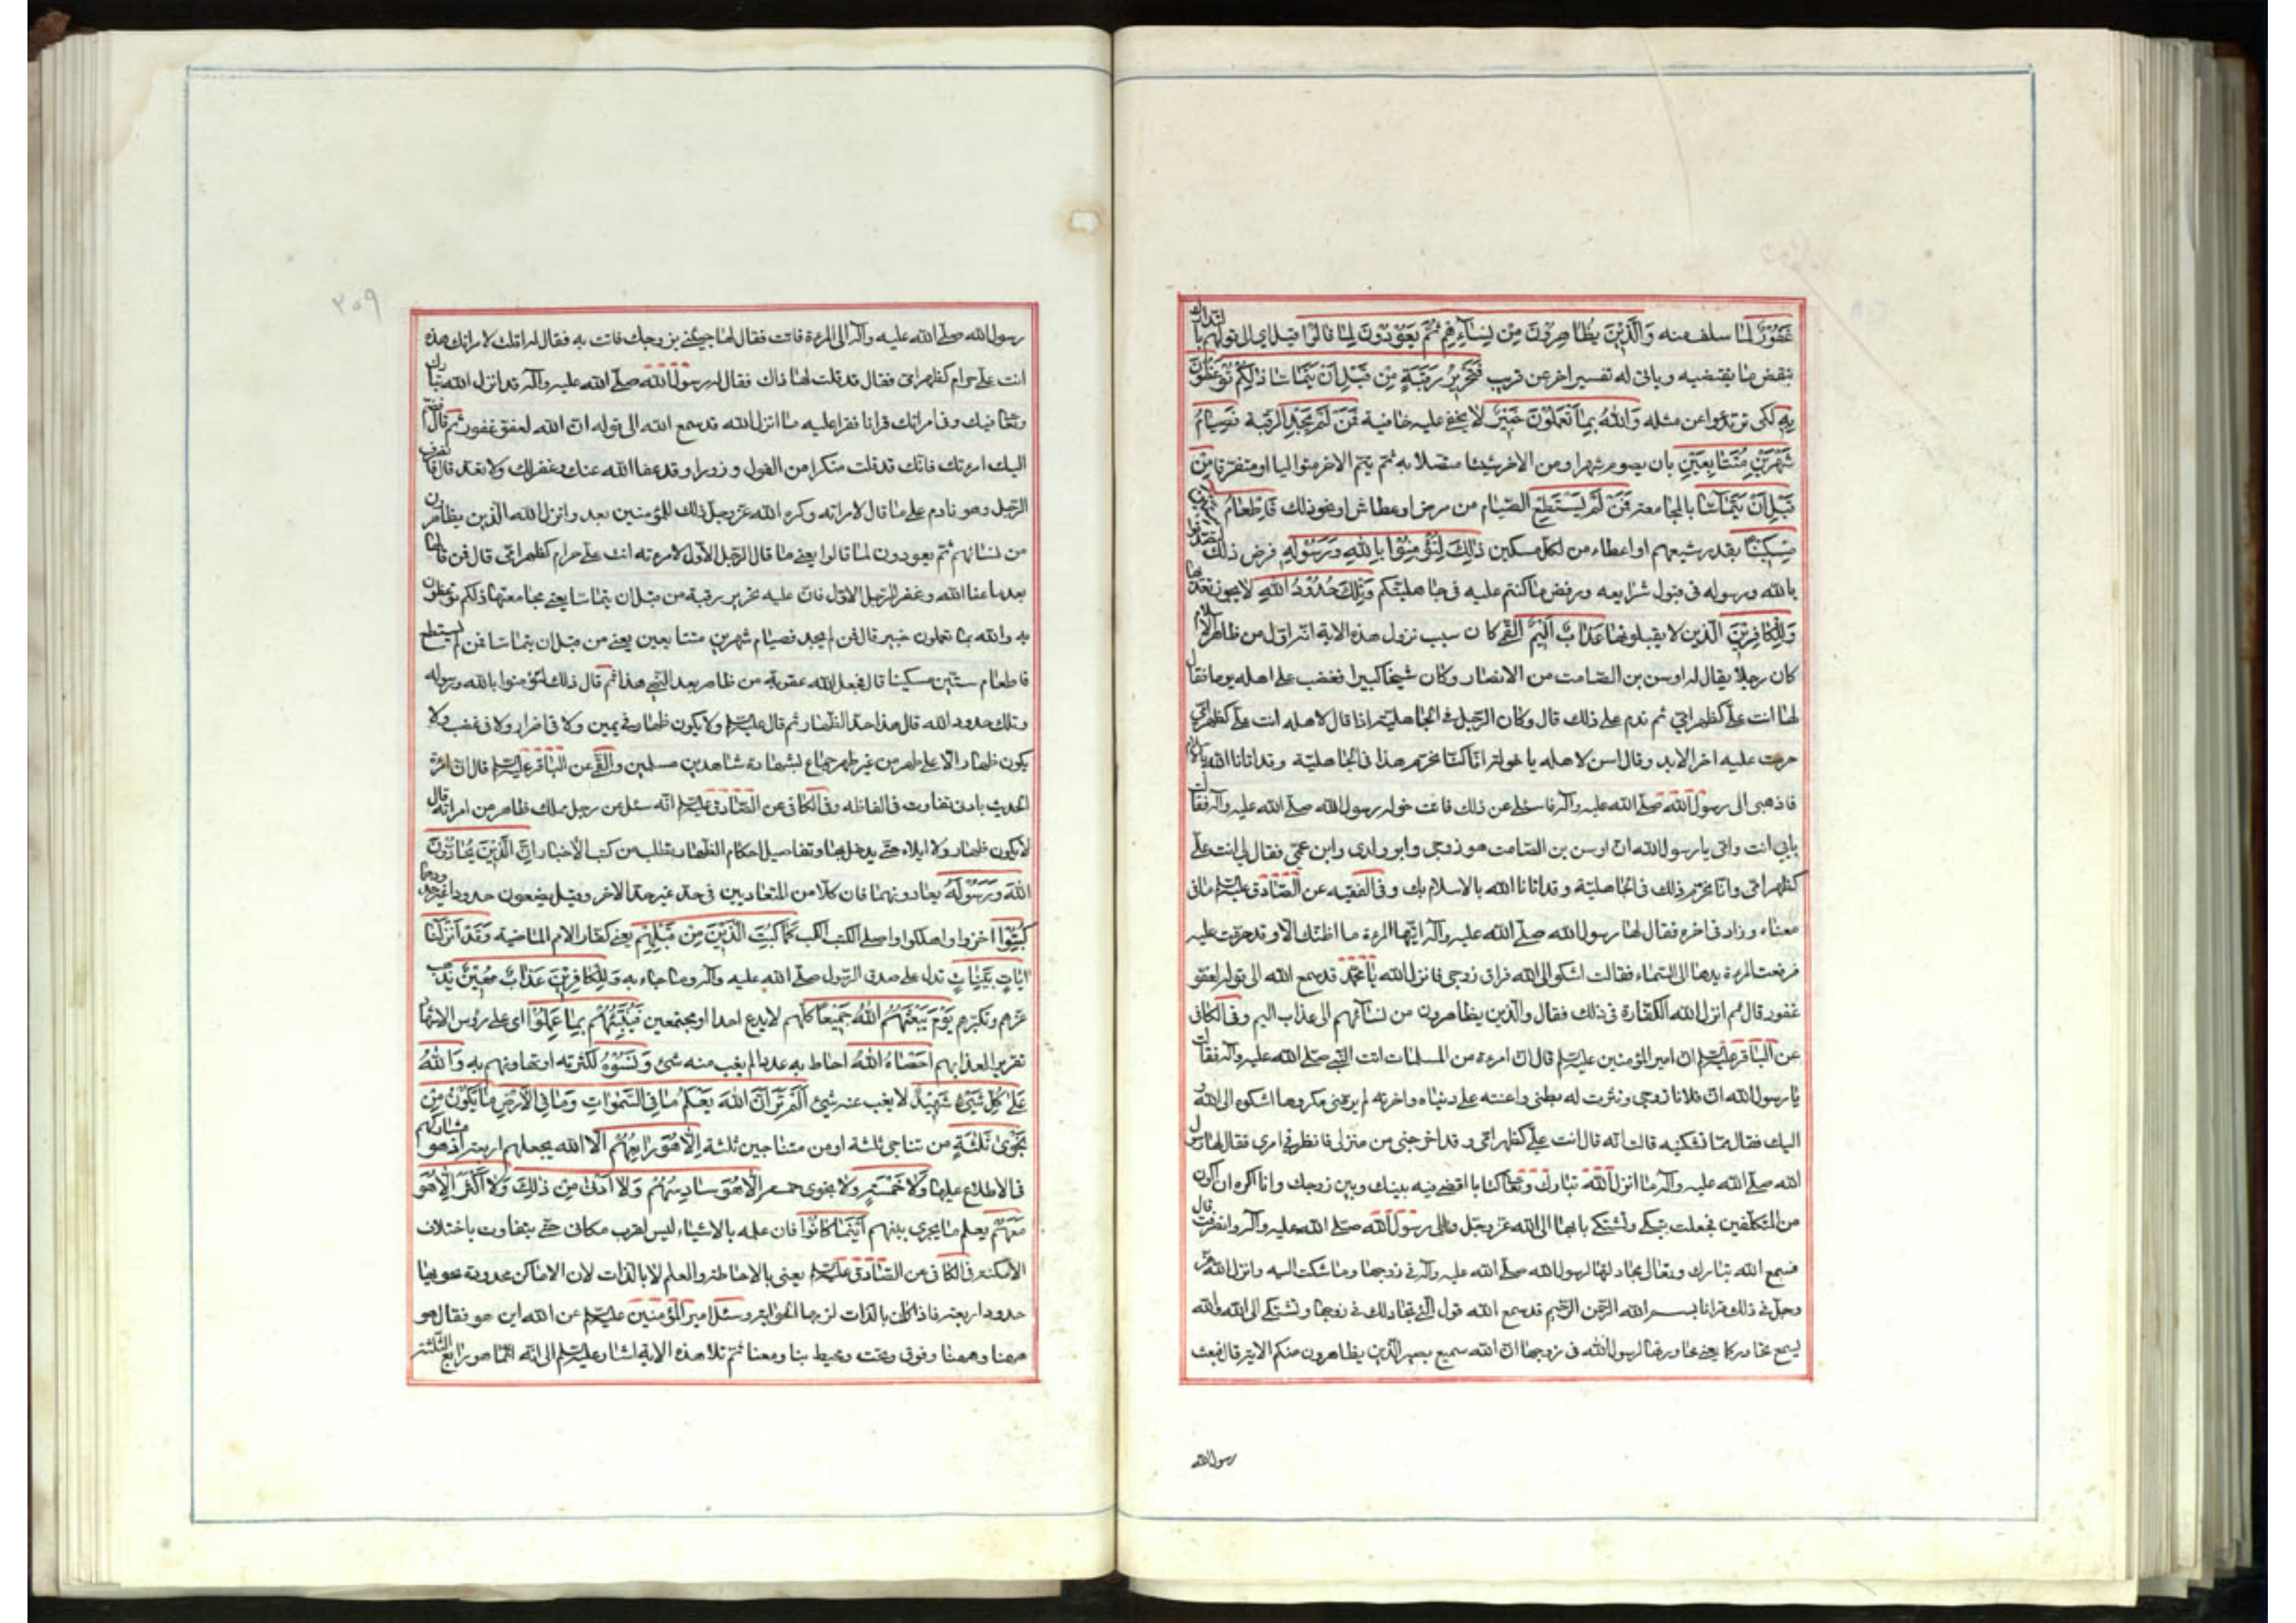 غَفُورٌ لما سلف منه وَالَّذِينَ يُظَاهِرُونَ مِن نِسَآئِهِمْ ثُمَّ يَعُودُونَ لِمَا قَالُوا قيل اي الى قولهم بالتدارك
بنقض ما يقتضيه وياتي له تفسير اخر عن قريب فَتَحْرِيرُ رَقَبَةٍ مِن قَبْلِ اَنْ يَتَمَاسَّا ذٰلِكُمْ تُوعَظُونَ
بِهِ لكى ترتدعوا عن مثله وَاللّٰهُ بِمَا تَعْمَلُونَ خَبِيرٌ لا يخفى عليه خافية فَمَنْ لَمْ يَجِدْ الرقبة فَصِيَامُ
شَهْرَيْنِ مُتَتَابِعَيْنِ بان يصوم شهرا ومن الاخر شيئا متصلا به ثم يتم الاخر متواليا او متفرقا مِنْ
قَبْلِ اَنْ يَتَمَاسَّا بالمجامعة فَمَنْ لَمْ يَسْتَطِعْ الصيام من مرض او عطاش او نحو ذلك فَاِطْعَامُ سِتِّينَ
مِسْكِينًا بقدر شبعهم او اعطاء من لكل مسكين ذٰلِكَ لِتُؤْمِنُوا بِاللّٰهِ وَرَسُولِهِ فرض ذلك لتصدقوا
بالله ورسوله في قبول شرايعه ورفض ما كنتم عليه في جاهليتكم وَتِلْكَ حُدُودُ اللّٰهِ لا يجوز تعديها
وَلِلْكَافِرِينَ الذين لا يقبلونها عَذَابٌ اَلِيمٌ القمى كان سبب نزول هذه الاية انه اول من ظاهر في الاسلام
كان رجلا يقال له اوس بن الصامت من الانصار وكان شيخا كبيرا فغضب على اهله يوما فقال
لها انت علىّ كظهر امى ثم ندم على ذلك قال وكان الرجل في الجاهلية اذا قال لاهله انت علىّ كظهر امى
حرمت عليه اخر الابد وقال اوس لاهله يا خولة انا كنا نحرم هذا في الجاهلية وقد اتانا الله بالاسلام
فاذهبى الى رسول الله صلى الله عليه وآله فاسئليه عن ذلك فاتت خولة رسول الله صلى الله عليه وآله فقالت
بابى انت وامى يا رسول الله ان اوس بن الصامت هو زوجى وابو ولدى وابن عمى فقال لى انت علىّ
كظهر امى وانا نحرم ذلك في الجاهلية وقد اتانا الله بالاسلام بك وفى الفقيه عن الصادق عليه السلم مافى
معناه وزاد في اخره فقال لها رسول الله صلى الله عليه وآله ايتها المرءة ما اظنك الا وقد حرمت عليه
فرفعت المرءة يدها الى السماء فقالت اشكو الى الله فراق زوجى فانزل الله يا محمد قد سمع الله الى قوله لعفو
غفور قال ثم انزل الله الكفارة في ذلك فقال والذين يظاهرون من نسائهم الى عذاب اليم وفى الكافى
عن الباقر عليه السلم ان امير المؤمنين عليه السلم قال ان امرءة من المسلمات اتت النبى صلى الله عليه وآله فقالت
يا رسول الله ان فلانا زوجى ونثرت له بطنى واعنته على دنياه واخرته لم ير منى مكروها اشكوه الى الله و
اليك فقال مما تشكينه قالت انه قال انت علىّ كظهر امى وقد اخرجنى من منزلى فانظر في امرى فقال لها رسول
الله صلى الله عليه وآله ما انزل الله تبارك وتعالى كتابا اقضى فيه بينك وبين زوجك وانا اكره ان اكون
من المتكلفين فجعلت تبكى وتشتكى ما بها الى الله عز وجل والى رسول الله صلى الله عليه وآله وانصرفت قال
فسمع الله تبارك وتعالى مجادلتها لرسول الله صلى الله عليه وآله في زوجها وما شكت اليه وانزل الله عز
وجل في ذلك قرانا بسم الله الرحمن الرحيم قد سمع الله قول التى تجادلك في زوجها وتشتكى الى الله والله
يسمع تحاوركما يعنى محاورتها لرسول الله في زوجها ان الله سميع بصير الذين يظاهرون منكم الاية قال فبعث
رسول الله
٣٠٩
رسول الله صلى الله عليه وآله الى المرءة فاتت فقال لها جيئنى بزوجك فاتت به فقال له اقلت لامراتك هذه
انت علىّ حرام كظهر امى فقال قد قلت لها ذاك فقال له رسول الله صلى الله عليه وآله قد انزل الله تبارك
وتعالى فيك وفى امراتك قرانا فقرا عليه ما انزل الله قد سمع الله الى قوله ان الله لعفو غفور ثم قال فضم
اليك امرءتك فانك قد قلت منكرا من القول وزورا وقد عفا الله عنك وغفر لك ولا تعد قال فانصرف
الرجل وهو نادم على ما قال لامراته وكره الله عز وجل ذلك للمؤمنين بعد وانزل الله الذين يظاهرون
من نسائهم ثم يعودون لما قالوا يعنى ما قال الرجل الاول لامرءته انت علىّ حرام كظهر امى قال فمن قالها
بعد ما عفا الله وغفر للرجل الاول فان عليه تحرير رقبة من قبل ان يتماسا يعنى مجامعتها ذلكم توعظون
به والله بما تعملون خبير قال فمن لم يجد فصيام شهرين متتابعين يعنى من قبل ان يتماسا فمن لم يستطع
فاطعام ستين مسكينا قال فجعل الله عقوبة من ظاهر بعد النهى هذا ثم قال ذلك لتؤمنوا بالله ورسوله
وتلك حدود الله قال هذا حد الظهار ثم قال عليه السلم ولا يكون ظهار في يمين ولا في اضرار ولا في غضب ولا
يكون ظهار الا على طهر من غير جماع بشهادة شاهدين مسلمين والقمى عن الباقر عليه السلم قال ان امرءة
الحديث بادنى تفاوت في الفاظه وفى الكافى عن الصادق عليه السلم انه سئل عن رجل يملك ظاهر من امراته قال
لا يكون ظهار ولا ايلاء حتى يدخل بها وتفاصيل احكام الظهار يطلب من كتب الاخبار اِنَّ الَّذِينَ يُحَادُّونَ
اللّٰهَ وَرَسُولَهُ يعادونهما فان كلا من المتعاديين في حد غير حد الاخر وقيل يضعون حدودا غير حدودهما
كُبِتُوا اخزوا واهلكوا واصل الكبت الكب كَمَا كُبِتَ الَّذِينَ مِنْ قَبْلِهِمْ يعنى كفار الامم الماضية وَقَدْ اَنْزَلْنَا
اٰيَاتٍ بَيِّنَاتٍ تدل على صدق الرسول صلى الله عليه وآله وما جاء به وَلِلْكَافِرِينَ عَذَابٌ مُهِينٌ يذهب
عزهم وتكبرهم يَوْمَ يَبْعَثُهُمُ اللّٰهُ جَمِيعًا كلهم لا يدع احدا او مجتمعين فَيُنَبِّئُهُمْ بِمَا عَمِلُوا اى على رؤس الاشهاد
تقريرا لعذابهم اَحْصَاهُ اللّٰهُ احاط به عددا لم يغب منه شئ وَنَسُوهُ لكثرته او تهاونهم به وَاللّٰهُ
عَلٰى كُلِّ شَيْءٍ شَهِيدٌ لا يغيب عنه شئ اَلَمْ تَرَ اَنَّ اللّٰهَ يَعْلَمُ مَا فِي السَّمٰوَاتِ وَمَا فِي الْاَرْضِ مَا يَكُونُ مِنْ
نَجْوٰى ثَلٰثَةٍ من تناجى ثلثة او من متناجين ثلثة اِلَّا هُوَ رَابِعُهُمْ الا الله يجعلهم اربعة اذ هو مشاركهم
في الاطلاع عليها وَلَا خَمْسَةٍ ولا نجوى خمسة اِلَّا هُوَ سَادِسُهُمْ وَلَا اَدْنٰى مِنْ ذٰلِكَ وَلَا اَكْثَرَ اِلَّا هُوَ
مَعَهُمْ يعلم ما يجرى بينهم اَيْنَمَا كَانُوا فان علمه بالاشياء ليس لقرب مكانى حتى يتفاوت باختلاف
الامكنة في الكافى عن الصادق عليه السلم يعنى بالاحاطة والعلم لا بالذات لان الاماكن محدودة تحويها
حدود اربعة فاذا كان بالذات لزمها الحواية وسئل امير المؤمنين عليه السلم عن الله اين هو فقال هو
ههنا وههنا وفوق وتحت ومحيط بنا ومعنا ثم تلا هذه الاية اشار عليه السلم الى انه انما هو رابع الثلثة